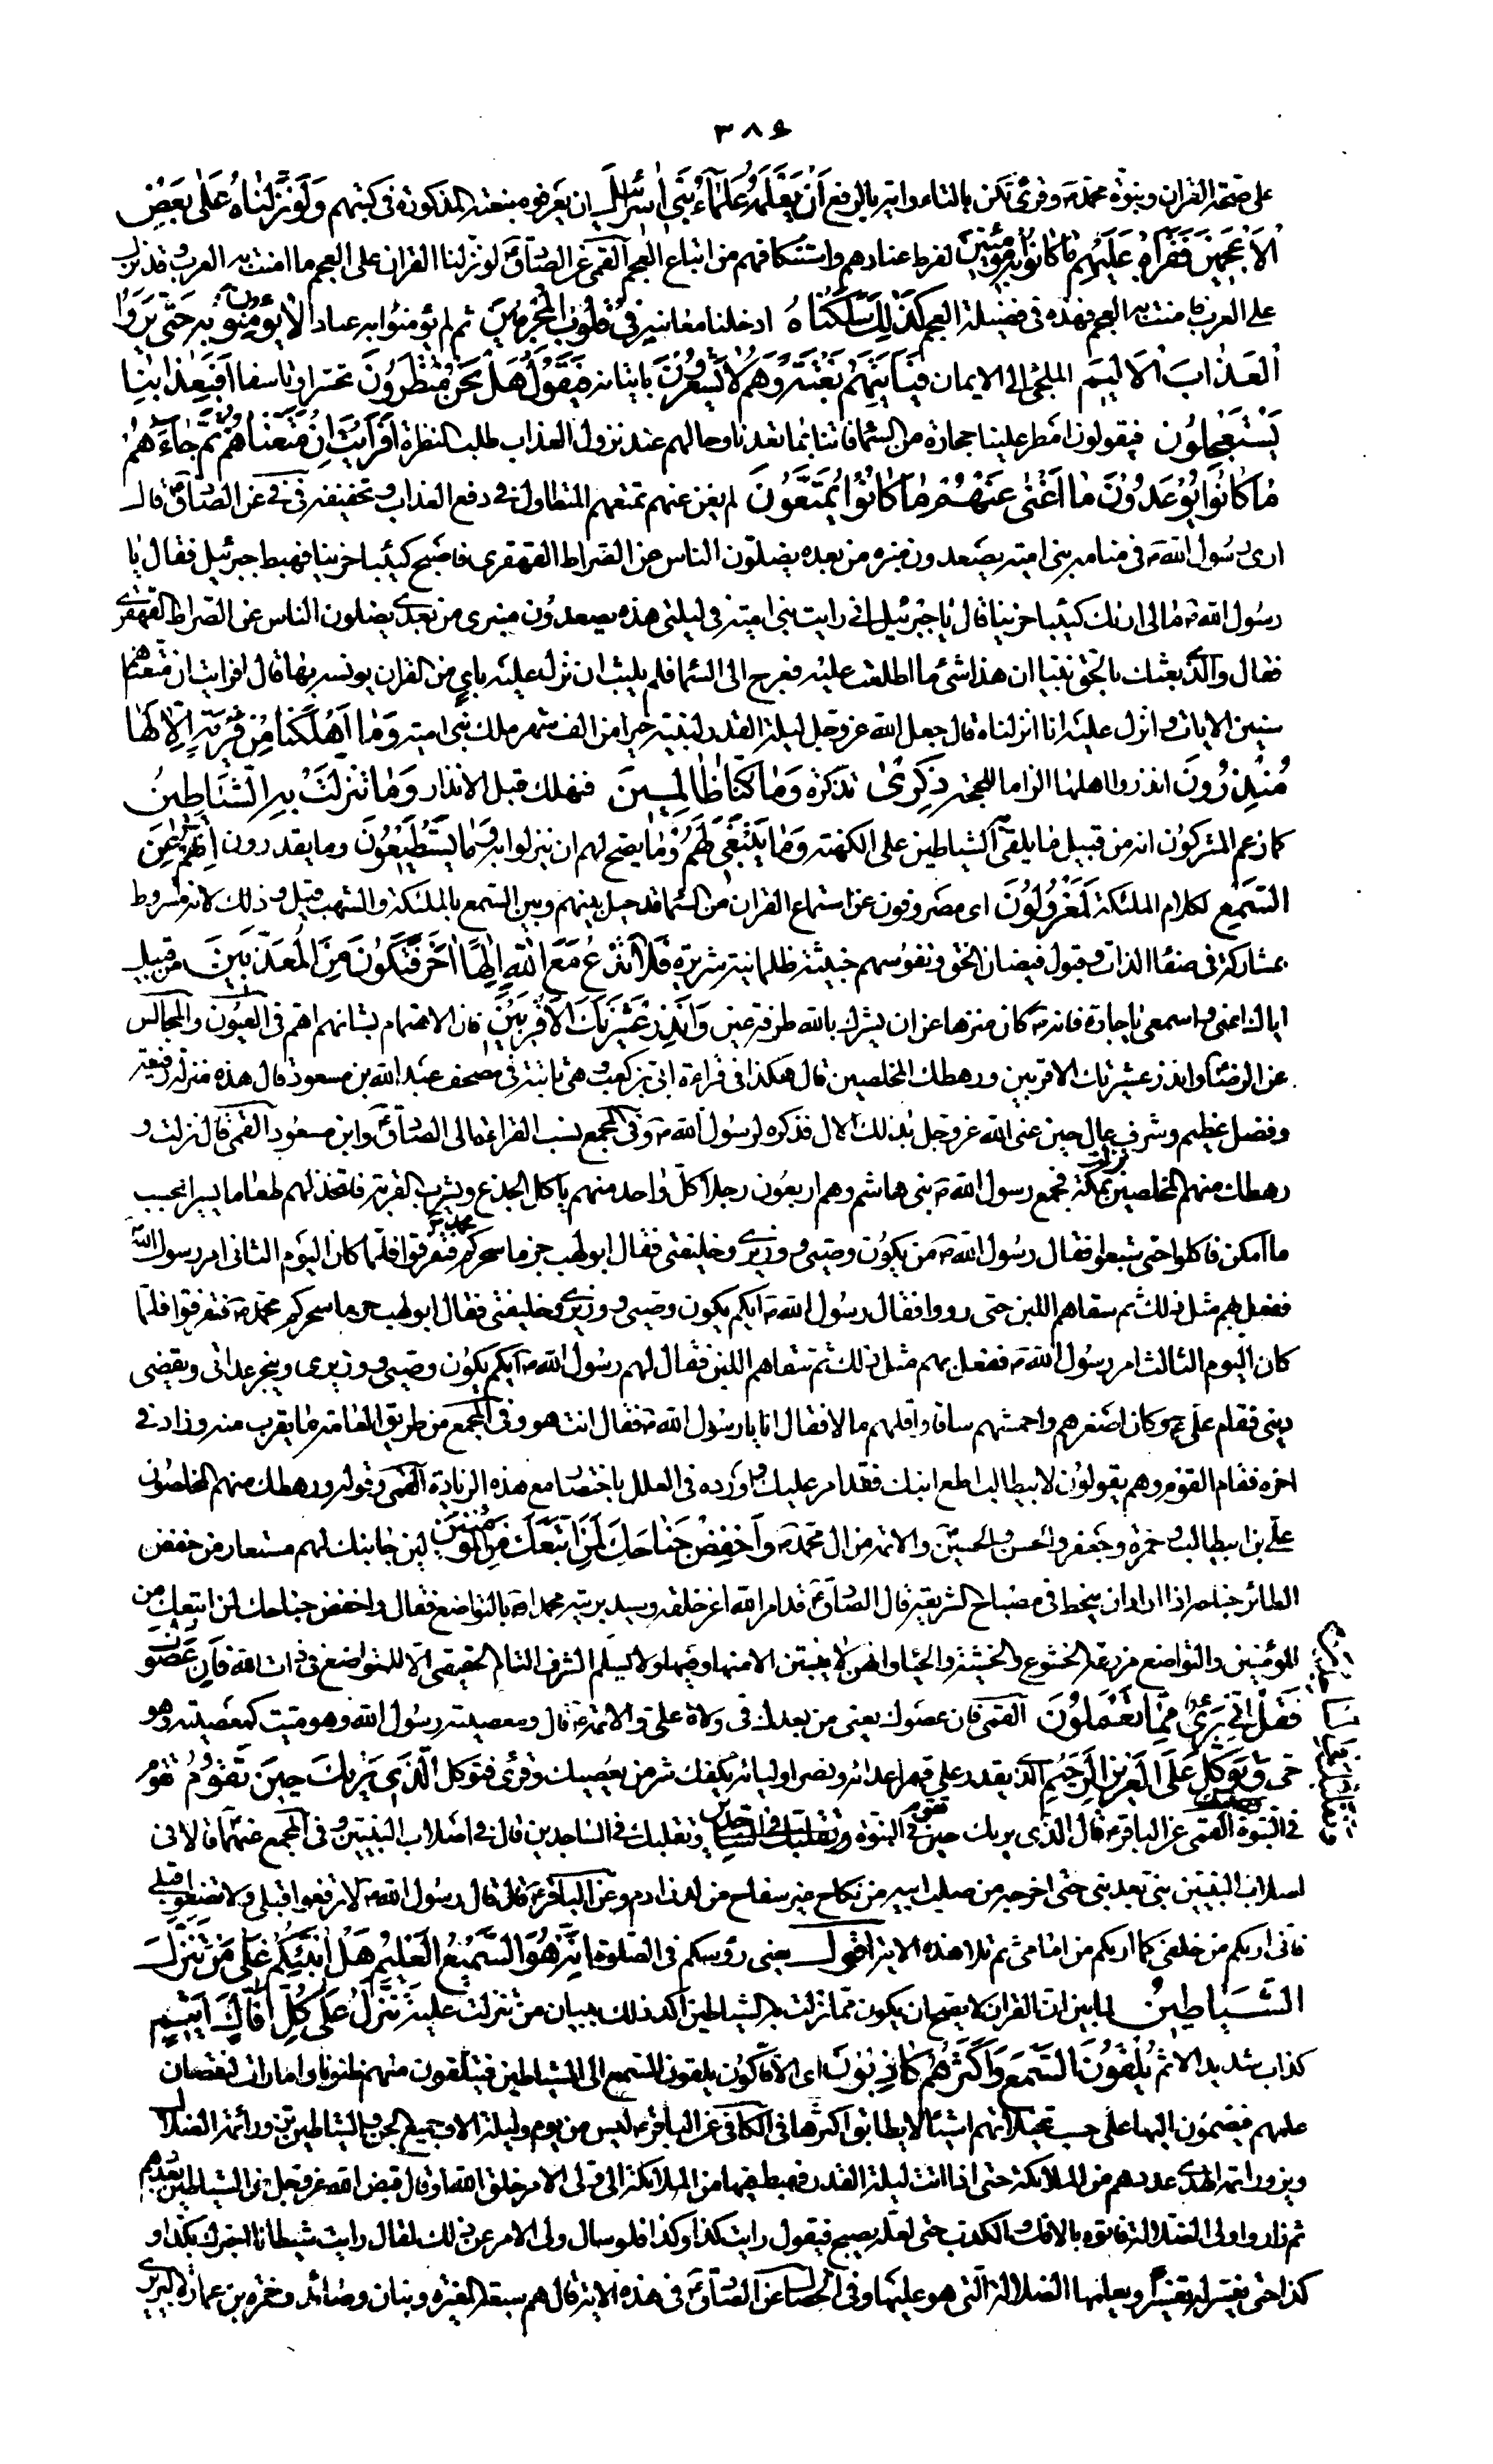 ٣٨٤
على صحة القران ونبوة محمد ص وقرئ تكن بالتاء واية بالرفع أَنْ يَعْلَمَهُ عُلَمَاءُ بَنِي إِسْرَائِيلَ ان يعرفوه بنعته المذكورة في كتبهم وَلَوْ نَزَّلْنَاهُ عَلَى بَعْضِ
الْأَعْجَمِينَ فَقَرَأَهُ عَلَيْهِمْ مَا كَانُوا بِهِ مُؤْمِنِينَ لفرط عنادهم واستنكافهم من اتباع العجم القمي عن الصادق ع لو نزلنا القران على العجم ما امنت به العرب وقد نزل
على العرب فامنت به العجم فهذه في فضيلة العجم كَذَلِكَ سَلَكْنَاهُ ادخلنا معانيه فِي قُلُوبِ الْمُجْرِمِينَ ثم لم يؤمنوا به عنادا لَا يُؤْمِنُونَ بِهِ حَتَّى يَرَوُا
الْعَذَابَ الْأَلِيمَ الملجئ الى الايمان فَيَأْتِيَهُمْ بَغْتَةً وَهُمْ لَا يَشْعُرُونَ باتيانه فَيَقُولُوا هَلْ نَحْنُ مُنْظَرُونَ تحسرا وتاسفا أَفَبِعَذَابِنَا
يَسْتَعْجِلُونَ فيقولون امطر علينا حجارة من السماء فاتنا بما تعدنا وحالهم عند نزول العذاب طلب النظرة أَفَرَأَيْتَ إِنْ مَتَّعْنَاهُمْ سِنِينَ ثُمَّ جَاءَهُمْ
مَا كَانُوا يُوعَدُونَ مَا أَغْنَى عَنْهُمْ مَا كَانُوا يُمَتَّعُونَ لم يغن عنهم تمتعهم المتطاول في دفع العذاب وتخفيفه في في عن الصادق ع قال
ارى رسول الله ص في منامه بني امية يصعدون منبره من بعده يضلون الناس عن الصراط القهقرى فاصبح كئيبا حزينا فهبط جبرئيل فقال يا
رسول الله ص مالي اراك كئيبا حزينا قال يا جبرئيل اني رايت بني امية في ليلتي هذه يصعدون منبري من بعدي يضلون الناس عن الصراط القهقرى
فقال والذي بعثك بالحق نبيا ان هذا شئ ما اطلعت عليه فعرج الى السماء فلم يلبث ان نزل عليه باي من القران يونسه بها قال افرايت ان متعناهم
سنين الايات وانزل عليه انا انزلناه قال جعل الله عز وجل ليلة القدر لنبيه خيرا من الف شهر ملك بني امية وَمَا أَهْلَكْنَا مِنْ قَرْيَةٍ إِلَّا لَهَا
مُنْذِرُونَ انذروا اهلها الزاما للحجة ذِكْرَى تذكرة وَمَا كُنَّا ظَالِمِينَ فنهلك قبل الانذار وَمَا تَنَزَّلَتْ بِهِ الشَّيَاطِينُ
كما زعم المشركون انه من قبيل ما يلقي الشياطين على الكهنة وَمَا يَنْبَغِي لَهُمْ وما يصح لهم ان ينزلوا به وَمَا يَسْتَطِيعُونَ وما يقدرون إِنَّهُمْ عَنِ
السَّمْعِ لكلام الملئكة لَمَعْزُولُونَ اى مصروفون عن استماع القران من السماء قد حيل بينهم وبين السمع بالملئكة والشهب قيل وذلك لانه مشروط
بمشاركة في صفاء الذات وقبول فيضان الحق ونفوسهم خبيثة ظلمانية شريرة فَلَا تَدْعُ مَعَ اللَّهِ إِلَهًا آخَرَ فَتَكُونَ مِنَ الْمُعَذَّبِينَ من قبيل
اياك اعني واسمعي يا جارة فانه ص كان منزها عن ان يشرك بالله طرفة عين وَأَنْذِرْ عَشِيرَتَكَ الْأَقْرَبِينَ فان الاهتمام بشانهم اهم في العيون والمجالس
عن الرضا ع وانذر عشيرتك الاقربين ورهطك المخلصين قال هكذا في قراءة ابي بن كعب وهي ثابتة في مصحف عبد الله بن مسعود قال هذه منزلة رفيعة
وفضل عظيم وشرف عال حين عنى الله عز وجل بذلك الال فذكره لرسول الله ص وفي المجمع نسب القراءة الى الصادق ع وابن مسعود القمي قال نزلت و
رهطك منهم المخلصين نزلت بمكة فجمع رسول الله ص بني هاشم وهم اربعون رجلا كل واحد منهم ياكل الجذع ويشرب القربة فاتخذ لهم طعاما يسيرا بحسب
ما امكن فاكلوا حتى شبعوا فقال رسول الله ص من يكون وصيي ووزيري وخليفتي فقال ابو لهب جزما سحركم محمد ص فتفرقوا فلما كان اليوم الثاني امر رسول الله
ففعل بهم مثل ذلك ثم سقاهم اللبن حتى رووا فقال رسول الله ص ايكم يكون وصيي ووزيري وخليفتي فقال ابو لهب جزما سحركم محمد ص فتفرقوا فلما
كان اليوم الثالث امر رسول الله ص ففعل بهم مثل ذلك ثم سقاهم اللبن فقال لهم رسول الله ص ايكم يكون وصيي ووزيري وينجز عداتي ويقضي
ديني فقام علي ع وكان اصغرهم واحمشهم ساقا واقلهم مالا فقال انا يا رسول الله ص فقال انت هو وفي المجمع من طريق العامة ما يقرب منه وزاد في
اخره فقام القوم وهم يقولون لابيطالب اطع ابنك فقد امر عليك واورده في العلل باختصار مع هذه الزيادة القمي وقوله ورهطك منهم المخلصون
علي بن ابيطالب وحمزة وجعفر والحسن والحسين ع والائمة من ال محمد ص وَاخْفِضْ جَنَاحَكَ لِمَنِ اتَّبَعَكَ مِنَ الْمُؤْمِنِينَ لين جانبك لهم مستعار من خفض
الطائر جناحه اذا اراد ان ينحط في مصباح الشريعة قال الصادق ع قد امر الله اعز خلقه وسيد بريته محمدا ص بالتواضع فقال واخفض جناحك لمن اتبعك من
المؤمنين والتواضع مزرعة الخشوع والخشية والحياء وانهن لا ينبتن الا منها وفيها ولا يسلم الشرف التام الحقيقي الا للمتواضع في ذات الله فَإِنْ عَصَوْكَ
فَقُلْ إِنِّي بَرِيءٌ مِمَّا تَعْمَلُونَ القمي فان عصوك يعني من بعدك في ولاية علي والائمة ع قال ومعصية رسول الله وهو ميت كمعصيته وهو
حي وَتَوَكَّلْ عَلَى الْعَزِيزِ الرَّحِيمِ الذي يقدر على قهر اعدائه ونصر اوليائه يكفك شر من يعصيك وقرئ فتوكل الَّذِي يَرَاكَ حِينَ تَقُومُ تقوم
في النبوة القمي عن الباقر ع قال الذي يريك حين تقوم في النبوة وَتَقَلُّبَكَ فِي السَّاجِدِينَ وتقلبك في الساجدين قال في اصلاب النبيين وفي المجمع عنهما قالا في
اصلاب النبيين نبي بعد نبي حتى اخرجه من صلب ابيه من نكاح غير سفاح من لدن ادم وعن الباقر ع قال قال رسول الله ص لا ترفعوا قبلي ولا تضعوا قبلي
فاني اريكم من خلفي كما اريكم من امامي ثم تلا هذه الاية اقول يعني رؤسكم في الصلوة إِنَّهُ هُوَ السَّمِيعُ الْعَلِيمُ هَلْ أُنَبِّئُكُمْ عَلَى مَنْ تَنَزَّلُ
الشَّيَاطِينُ لما بين ان القران لا يصح ان يكون مما نزلت به الشياطين اكد ذلك ببيان من تنزلت عليه تَنَزَّلُ عَلَى كُلِّ أَفَّاكٍ أَثِيمٍ
كذاب شديد الاثم يُلْقُونَ السَّمْعَ وَأَكْثَرُهُمْ كَاذِبُونَ اى الافاكون يلقون السمع الى الشياطين فيتلقون منهم ظنونا وامارات لنقصان
علمهم فيضمون اليها على حسب تخيلاتهم اشياء لا يطابق اكثرها في الكافي عن الباقر ع ليس من يوم وليلة الا وجميع الجن والشياطين تزور ائمة الضلال
ويزور ائمة الهدى عددهم من الملائكة حتى اذا اتت ليلة القدر فهبط فيها من الملائكة الى ولي الامر خلق الله او قال قيض الله عز وجل من الشياطين بعددهم
ثم زاروا ولي الضلالة فاتوه بالافك والكذب حتى لعله يصبح فيقول رايت كذا وكذا فلو سال ولي الامر عن ذلك لقال رايت شيطانا اخبرك بكذا و
كذا حتى يفسر له تفسيرا ويعلمه الضلالة التي هو عليها وفي الخصال عن الصادق ع في هذه الاية قال هم سبعة المغيرة وبنان وصائد وحمزة بن عمارة البربري